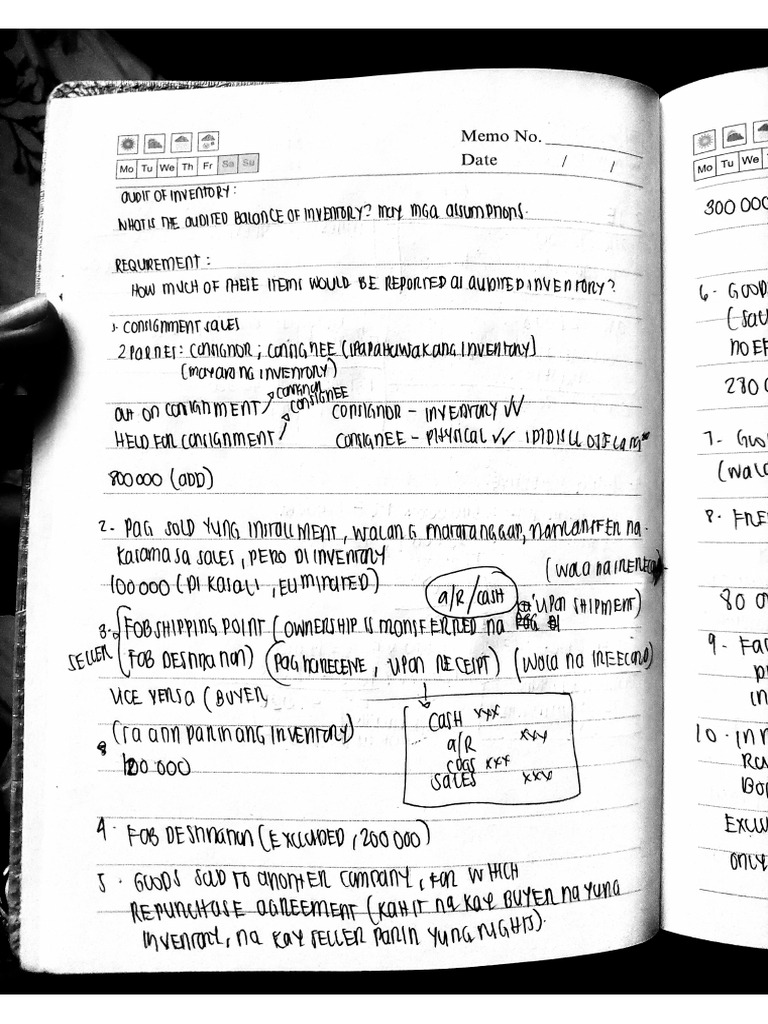 Memo No.
Date / /
Mo Tu We Th Fr Sa Su
AUDIT OF INVENTORY:
WHAT IS THE AUDITED BALANCE OF INVENTORY? may mga assumptions.
REQUIREMENT:
HOW MUCH OF THESE ITEMS WOULD BE REPORTED AS AUDITED INVENTORY?
1. CONSIGNMENT SALES
2 PARTIES: CONSIGNOR; CONSIGNEE (IPAPAHAWAK ANG INVENTORY)
(MAY ARI NG INVENTORY)
CONSIGNOR
OUT ON CONSIGNMENT CONSIGNEE CONSIGNOR - INVENTORY
HELD FOR CONSIGNMENT CONSIGNEE - PHYSICAL
800 000 (ADD)
2- PAG SOLD YUNG INSTALLMENT, WALANG
SALES, PERO DI INVENTORY
(WALA NA IRERECORD)
100 000 (DI KASALI, ELIMINATED)
A/R / CASH
UPON SHIPMENT)
3. FOB SHIPPING POINT (OWNERSHIP IS TRANSFERRED NA
SELLER (FOB DESTINATION) (PAG NARECEIVE, UPON RECEIPT) (WALA NA IRERECORD)
VICE VERSA (BUYER)
CASH xxx
(SA ATIN PARIN ANG INVENTORY)
A/R xxx
COGS xxx
SALES xxx
4. FOB DESTINATION (EXCLUDED, 200 000)
5. GOODS SOLD TO ANOTHER COMPANY, FOR WHICH
REPURCHASE AGREEMENT (KAHIT NA KAY BUYER NA YUNG
INVENTORY, NA KAY SELLER PARIN YUNG RIGHTS).
Mo Tu We
300 000
6- GOOD
NO EF
7- GOO
(WALA
8. FRE
80 0
9. FA
IN
10. IN
EXCLU
ONLY